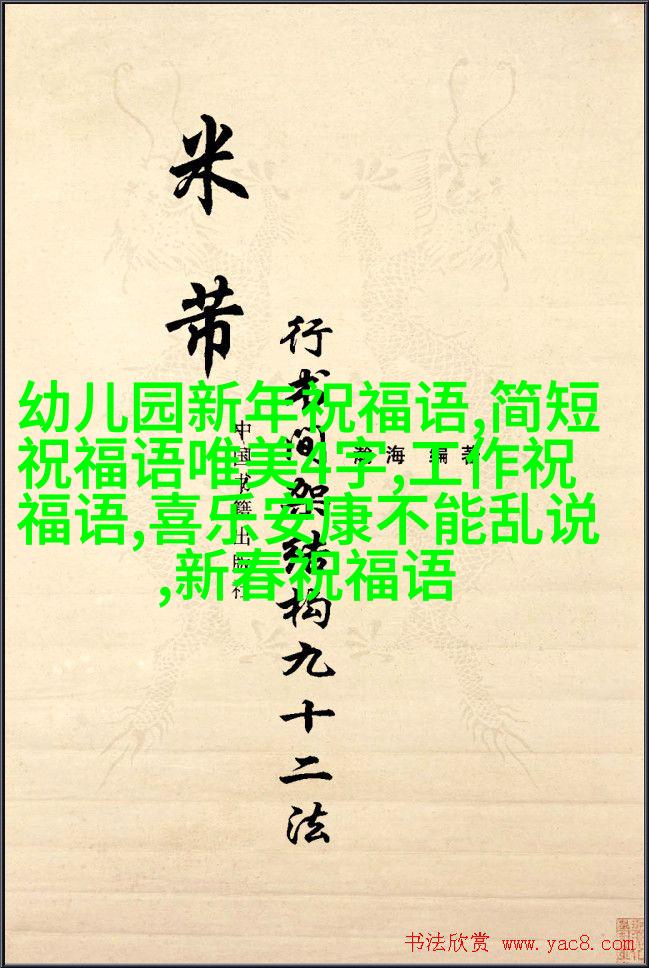 米芾
行书间架结构九十二法
瀚海 编著
中国书籍出版社
幼儿园新年祝福语,简短
祝福语唯美4字,工作祝
福语,喜乐安康不能乱说
,新春祝福语
书法欣赏 www.yac8.com